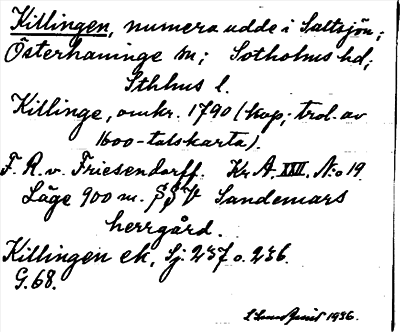 Killingen, numera udde i Saltsjön;
Österhaninge sn; Sotholms hd;
Sthlms l.
Killinge, omkr. 1790 (kop; trol. av
1600-talskarta).
F. R. v. Friesendorff. Kr A. XXII. N:o 19.
Läge 900 m. SSV Sandemars
herrgård.
Killingen ek, Sj. 237 o. 236.
G. 68.
1936.